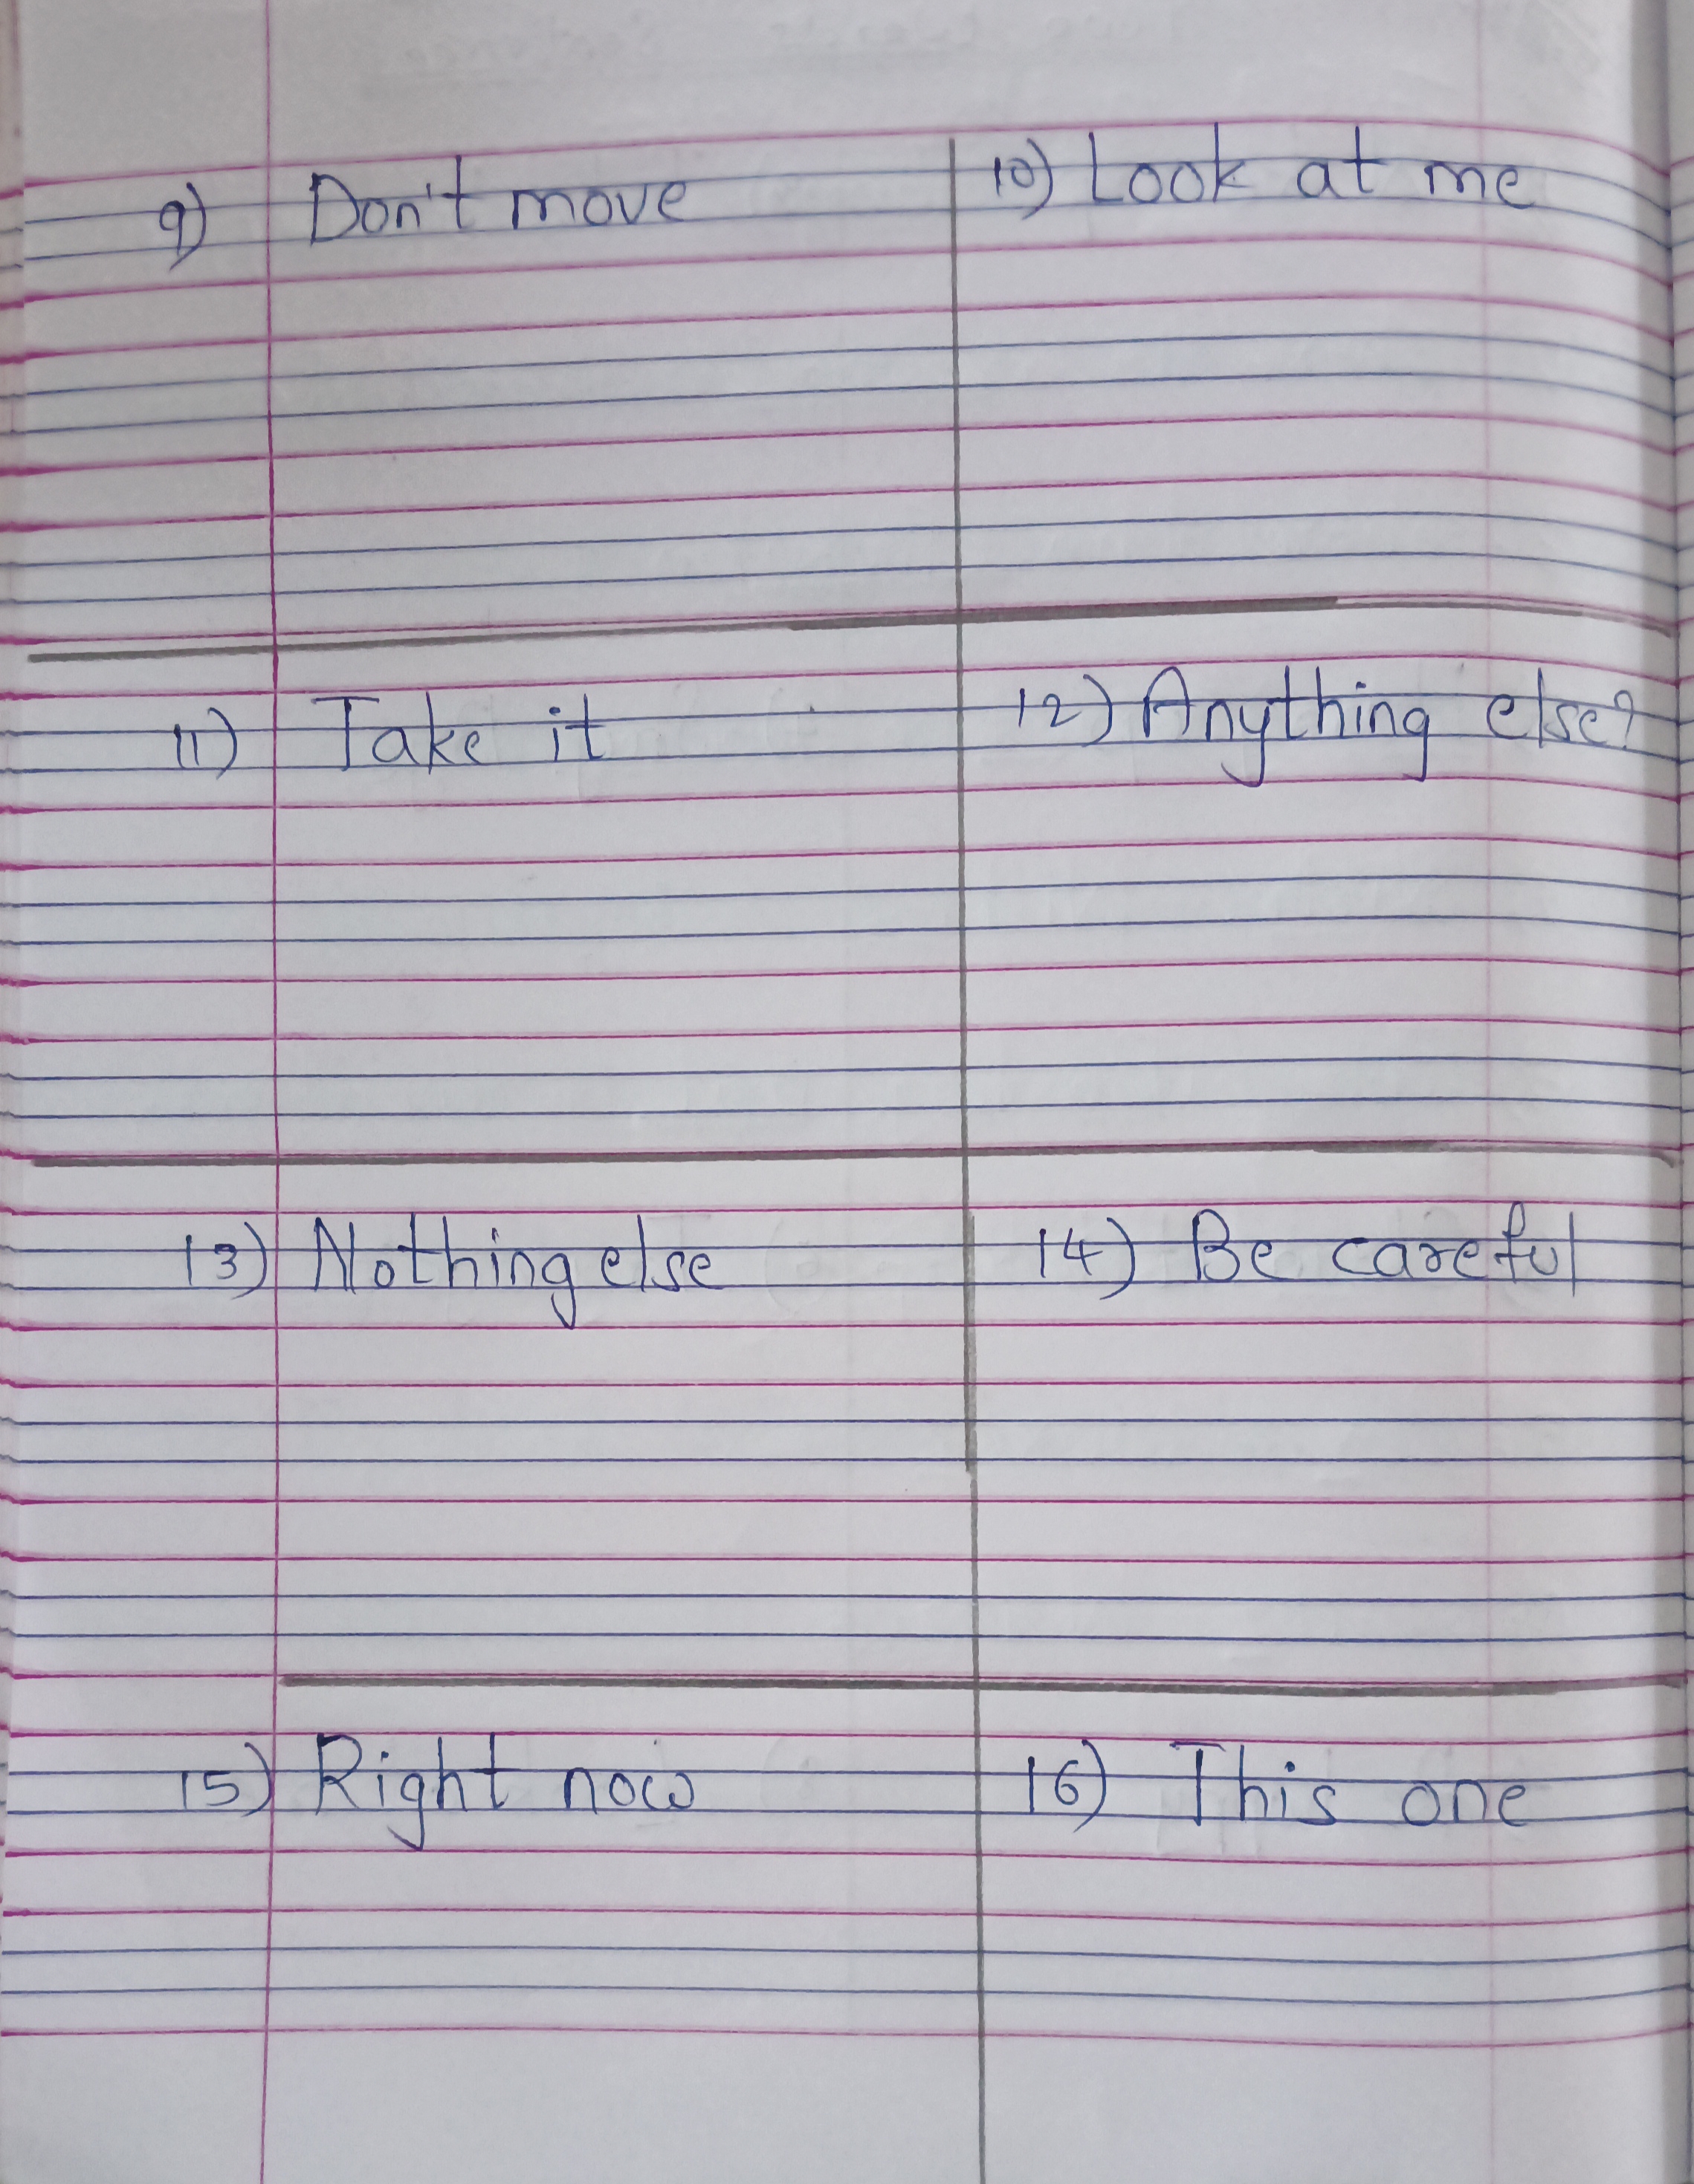 9) Don't move
10) Look at me
11) Take it
12) Anything else?
13) Nothing else
14) Be careful
15) Right now
16) This one